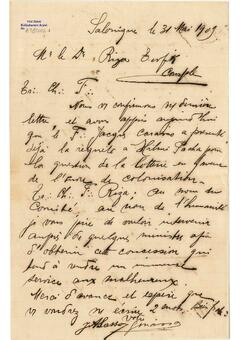 Salonique le 31 Mai 1909
Mr le Dr Riza Tevfik
Cnople
T∴ Ch∴ F∴
Nous vous confirmons n/ dernière
lettre et avons appris aujourd'hui
que le F∴ Jacques a présenté
déjà la requête à Hilmi Pacha pour
la question de la lotterie en faveur
de l'Œuvre de colonisation.
T∴ Ch∴ F∴ Riza. Au nom du
Comité au nom de l'humanité
je vous prie de vouloir intervenir
auprès de quelques ministres afin
d'obtenir cette concession qui
tend à rendre un immense
service aux malheureux.
Merci d'avance et espère que
vous voudrez m'écrire
Votre